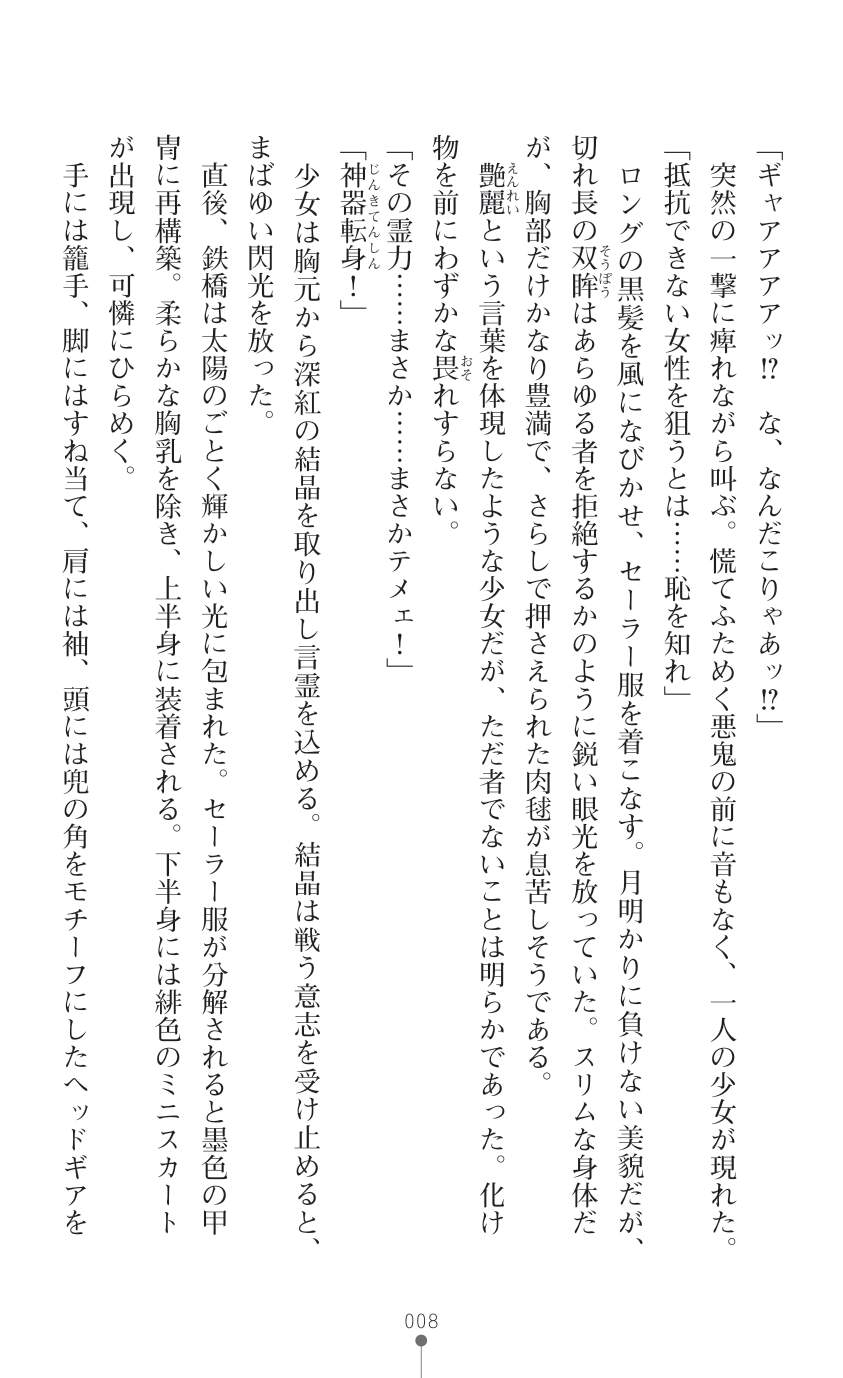 「ギャアアアアッ!?　な、なんだこりゃあッ!?」
　突然の一撃に痺れながら叫ぶ。慌てふためく悪鬼の前に音もなく、一人の少女が現れた。
「抵抗できない女性を狙うとは……恥を知れ」
　ロングの黒髪を風になびかせ、セーラー服を着こなす。月明かりに負けない美貌だが、
切れ長の双眸はあらゆる者を拒絶するかのように鋭い眼光を放っていた。スリムな身体だ
が、胸部だけかなり豊満で、さらしで押さえられた肉毬が息苦しそうである。
　艶麗という言葉を体現したような少女だが、ただ者でないことは明らかであった。化け
物を前にわずかな畏れすらない。
「その霊力……まさか……まさかテメェ！」
「神器転身！」
　少女は胸元から深紅の結晶を取り出し言霊を込める。結晶は戦う意志を受け止めると、
まばゆい閃光を放った。
　直後、鉄橋は太陽のごとく輝かしい光に包まれた。セーラー服が分解されると墨色の甲
冑に再構築。柔らかな胸乳を除き、上半身に装着される。下半身には緋色のミニスカート
が出現し、可憐にひらめく。
　手には籠手、脚にはすね当て、肩には袖、頭には兜の角をモチーフにしたヘッドギアを
008